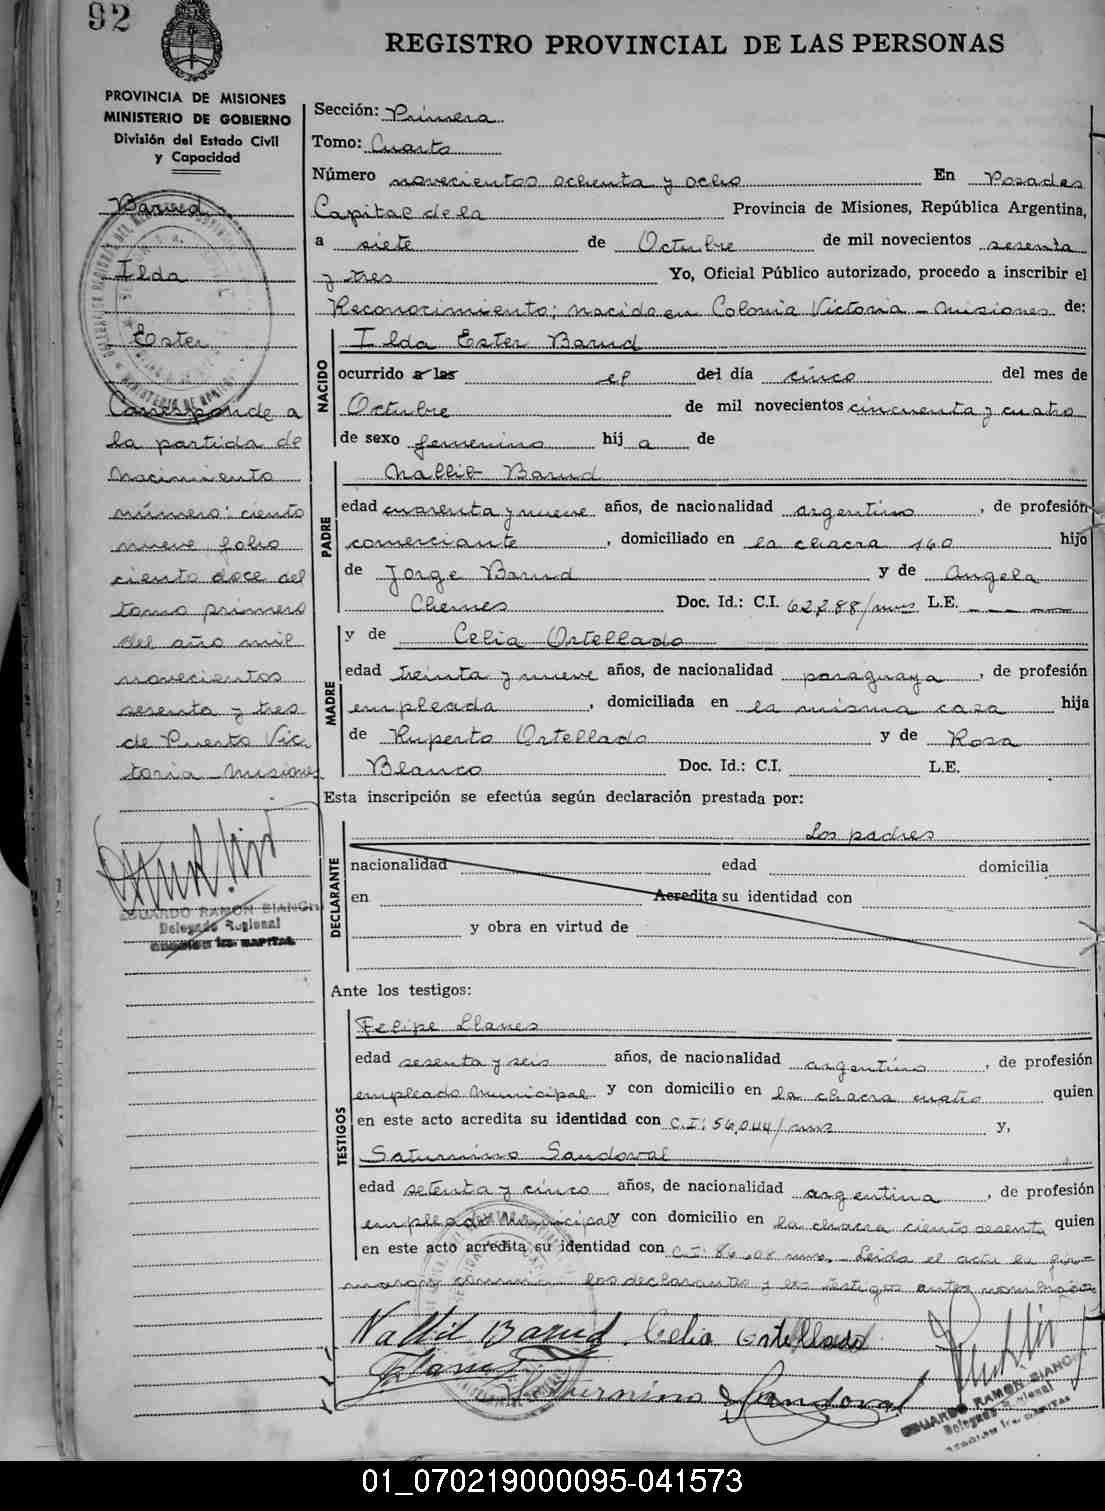 92
REGISTRO PROVINCIAL DE LAS PERSONAS
PROVINCIA DE MISIONES
MINISTERIO DE GOBIERNO
División del Estado Civil
y Capacidad
Barud
Ilda
Ester
Corresponde a
la partida de
Nacimiento
número: ciento
nueve folio
ciento doce del
tomo primero
del año mil
novecientos
sesenta y tres
de Puerto Vic
toria Misiones
EDUARDO RAMON BIANCHI
Delegado Regional
Sección: Primera
Tomo: Cuarto
Número novecientos ochenta y ocho En Posadas
Capital de la Provincia de Misiones, República Argentina,
a siete de Octubre de mil novecientos sesenta
y tres Yo, Oficial Público autorizado, procedo a inscribir el
Reconocimiento; nacido en Colonia Victoria - Misiones de:
NACIDO
Ilda Ester Barud
ocurrido a las el del día cinco del mes de
Octubre de mil novecientos cincuenta y cuatro
de sexo femenino hij a de
PADRE
Nallib Barud
edad cuarenta y nueve años, de nacionalidad argentino, de profesión
comerciante, domiciliado en la chacra 160 hijo
de Jorge Barud y de Angela
Chemes Doc. Id.: C.I. 62,288/mns L.E.
MADRE
y de Celia Ortellado
edad treinta y nueve años, de nacionalidad paraguaya, de profesión
empleada, domiciliada en la misma casa hija
de Ruperto Ortellado y de Rosa
Blanco Doc. Id.: C.I. L.E.
Esta inscripción se efectúa según declaración prestada por:
DECLARANTE
Los padres
nacionalidad edad domicilia
en Acredita su identidad con
y obra en virtud de
Ante los testigos:
TESTIGOS
Felipe Llanes
edad sesenta y seis años, de nacionalidad argentino, de profesión
empleado Municipal y con domicilio en la chacra cuatro quien
en este acto acredita su identidad con C.I: 56,044/mns y,
Saturnino Sandoval
edad setenta y cinco años, de nacionalidad argentina, de profesión
empleado Municipal y con domicilio en la chacra ciento sesenta quien
en este acto acredita su identidad con C.I: Leida el acta la fir-
maron los declarantes y los testigos antes nombrados
Nallib Barud Celia Ortellado
Saturnino Sandoval
EDUARDO RAMON BIANCHI
Delegado Regional
01_070219000095-041573